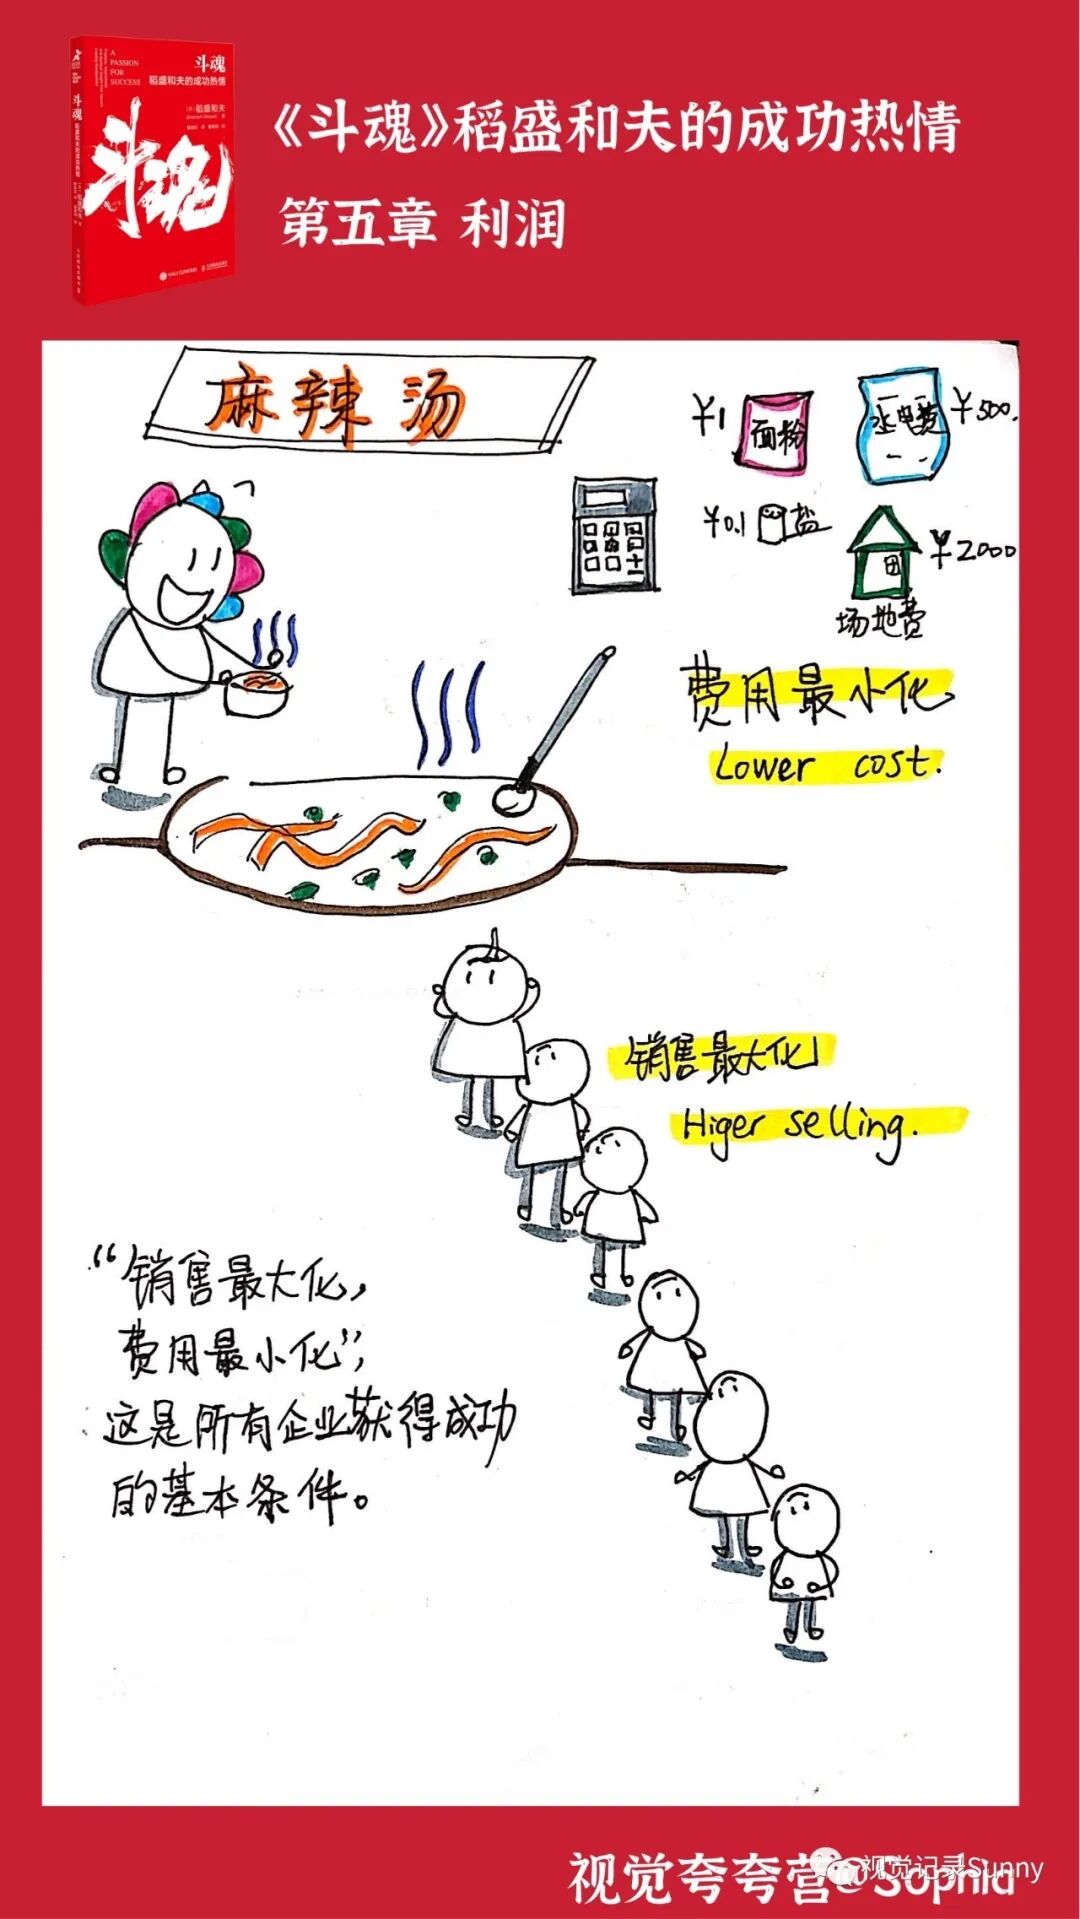 A
PASSION
FOR
SUCCESS
斗魂
稻盛和夫的成功热情
斗魂
斗魂
稻盛和夫的成功热情
《斗魂》稻盛和夫的成功热情
第五章 利润
麻辣汤
¥1 面粉
水电费 ¥500.
¥0.1 盐
¥2000
场地费
费用最小化
Lower cost.
销售最大化
Higer selling.
“销售最大化,
费用最小化”,
这是所有企业获得成功
的基本条件。
视觉夸夸营@Sophia
视觉记录Sunny